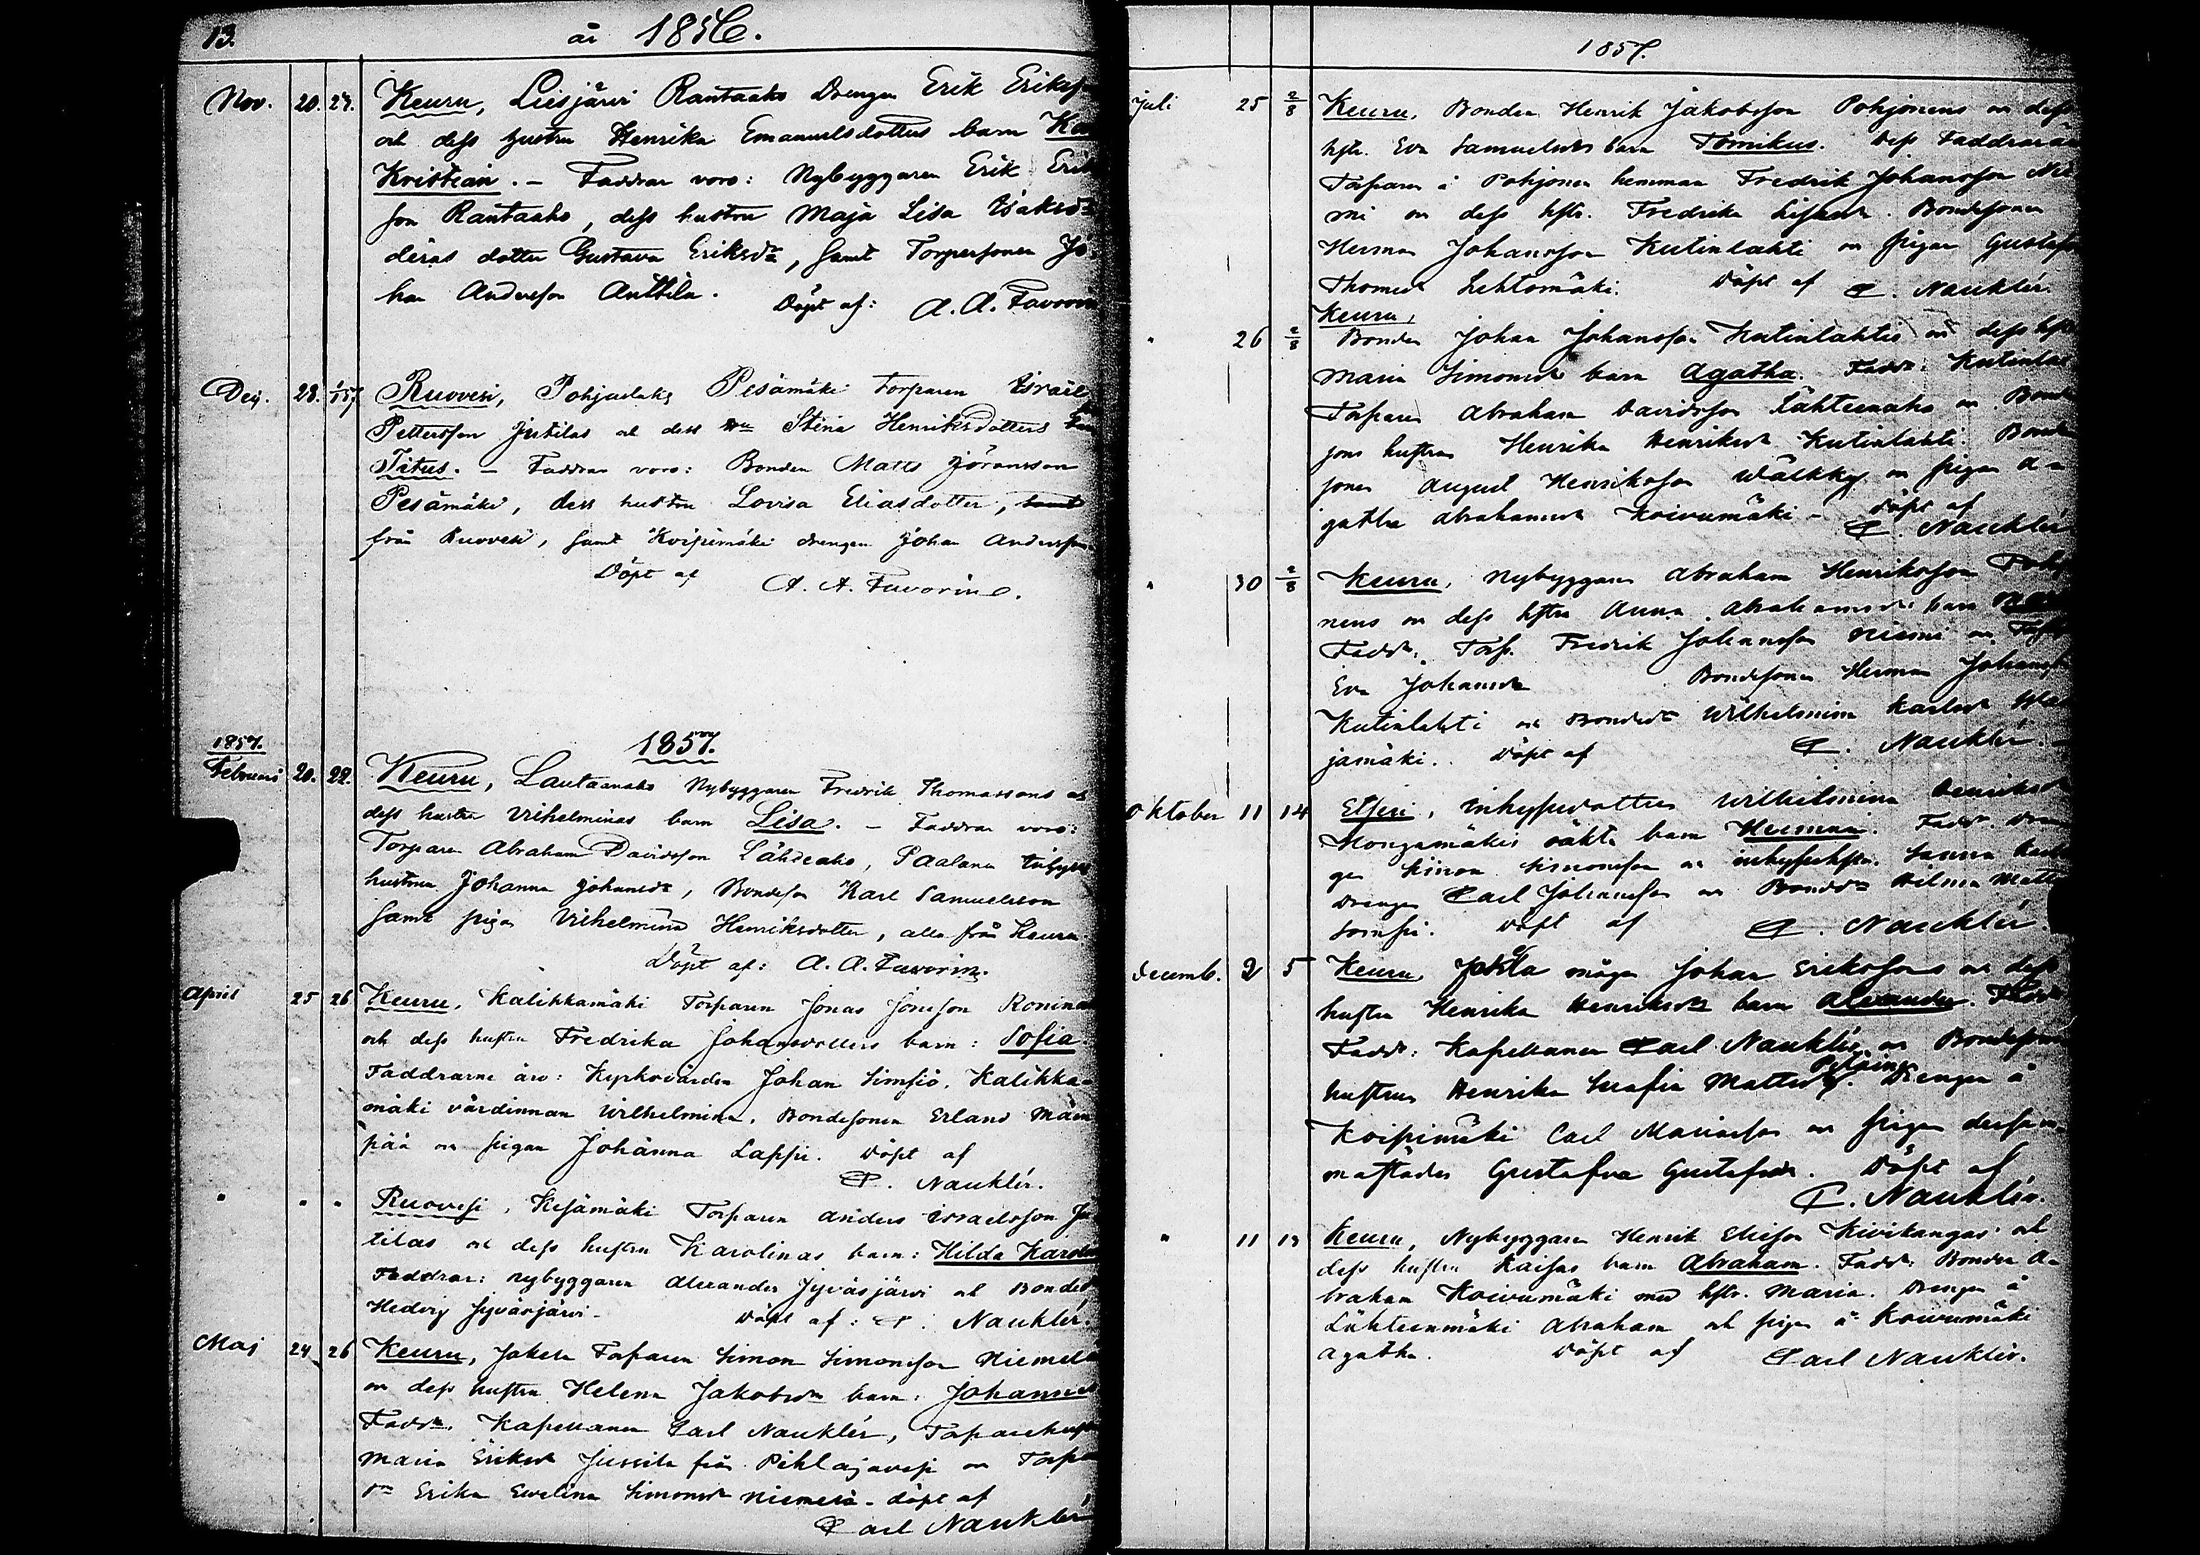 13. år 1856.
Nov. 20. 27. Keuru, Liesjärvi Rantaaho Drengen Erik Eriks
och dess hustru Henrika Emanuelsdotters barn
Kristian. – Faddrar voro: Nybyggaren Erik Erik
son Rantaaho, dess hustru Maja Lisa Isaksdr
deras dotter Gustava Eriksdr, samt Torparsonen Jo
han Andersson Anttila. Döpt af: A. A. Favorin
Dec. 28. 1/1 57. Ruovesi, Pohjaslaks Pesämäki Torparen Israel
Pettersson Jutilas och dess Stina Henriksdotters
Titus. – Faddrar voro: Bonden Matts Göransson
Pesämäki, dess hustru Lovisa Eliasdotter, samt
från Ruovesi, samt Koipimäki drengen Johan Andersson.
Döpt af A. A. Favorin.
1857.
1857.
Februari 20. 22. Keuru, Lautaanaho Nybyggaren Fredrik Thomassons och
dess hustru Vilhelminas barn Lisa. – Faddrar voro:
Torparen Abraham Davidsson Lähdeaho, Paalanen
hustrun Johanna Johansdr, Bondeson Karl Samuelsson
samt pigan Vilhelmina Henriksdotter, alla från Keuru.
Döpt af: A. A. Favorin.
April 25 26 Keuru, Kalikkamäki Torparen Jonas Jonsson
och dess hustru Fredrika Johansdotters barn: Sofia
Faddrarne äro: Kyrkovärden Johan Simsiö, Kalikka-
mäki värdinnan Wilhelmina, Bondesonen Erland Män
pää och pigan Johanna Lappi. Döpt af
C. Nauklér.
" " " Ruovesi, Kesämäki Torparen Anders Israelsson Ju
tilas och dess hustru Karolinas barn: Hilda Karolin
Faddrar: nybyggaren Alexander Jyväsjärvi och Bonded
Hedvig Jyväsjärvi. Döpt af: C. Nauklér.
Maj 24 26 Keuru, Jokela Torparen Simon Simonsson Niemelä
och dess hustru Helena Jakobsdr barn: Johannes
Faddr. Kapellanen Carl Nauklér, Torparehustr
Maria Eriksdr Jussila från Pihlajavesi och Torpa
dr Erika Evelina Simonsdr Niemelä. döpt af
Carl Nauklér
1857.
Juli 25 2/8 Keuru, Bonden Henrik Jakobsson Pohjonens och dess
hstr. Eva Samuelsdrs barn Tomikus. Dess Faddrar
Torparen å Pohjonen hemman Fredrik Johansson Nie
mi och dess hstr. Fredrika. Bondesonen
Herman Johansson Kutinlahti och pigan Gustafva
Thomasdr Lehtomäki. Döpt af C. Nauklér.
Keuru,
" 26 2/8 Bonden Johan Johansson Kutinlahtis och dess hstr
Maria Simonsdr barn Agatha. Faddr: Kutinlah
Torparen Abraham Davidsson Lähteenaho och Bonde
sons hustrun Henrika Henriksdr Kutinlahti. Bonde
sonen August Henriksson Wälkky och pigan A-
gatha Abrahamsdr Koivumäki – döpt af
C. Nauklér
" 30 2/8 Keuru, Nybyggaren Abraham Henriksson Pohjo
nens och dess hstru Anna Abrahamsdrs barn
Faddr. Torp. Fredrik Johansson Niemi och
Eva Johansdr Bondesonen Herman Johansson
Kutinlahti och Bondedr Wilhelmina Karlsdr
jamäki. Döpt af C. Nauklér.
Oktober 11 14 Etseri, inhysedottren Wilhelmina Henriksdr
Mongamäkis oäkta barn Herman. Faddr. Dren
gen Simon Simonsson och inhyseshstr. Sanna
Drengen Carl Johansson och Bondedr Hilma Matts
Döpt af C. Nauklér.
Decemb. 2 5 Keuru, Jokela mågen Johan Erikssons och dess
hustru Henrika Henriksdr barn Alexander.
Faddr: Kapellanen Carl Nauklér och Bondesons
hustrun Henrika Serafia Mattsdr. Drengen å
Koipimäki Carl Mariasson och pigan dersam-
mastädes Gustafva Gustafsdr. Döpt af
C. Nauklér.
" 11 13 Keuru, Nybyggaren Henrik Eliasson Kivikangas och
dess hustru Kaisas barn Abraham. Faddr: Bonden A-
braham Koivumäki med hstr. Maria. Drengen å
Lähteenmäki Abraham och pigan å Koivumäki
Agatha. Döpt af Carl Nauklér.